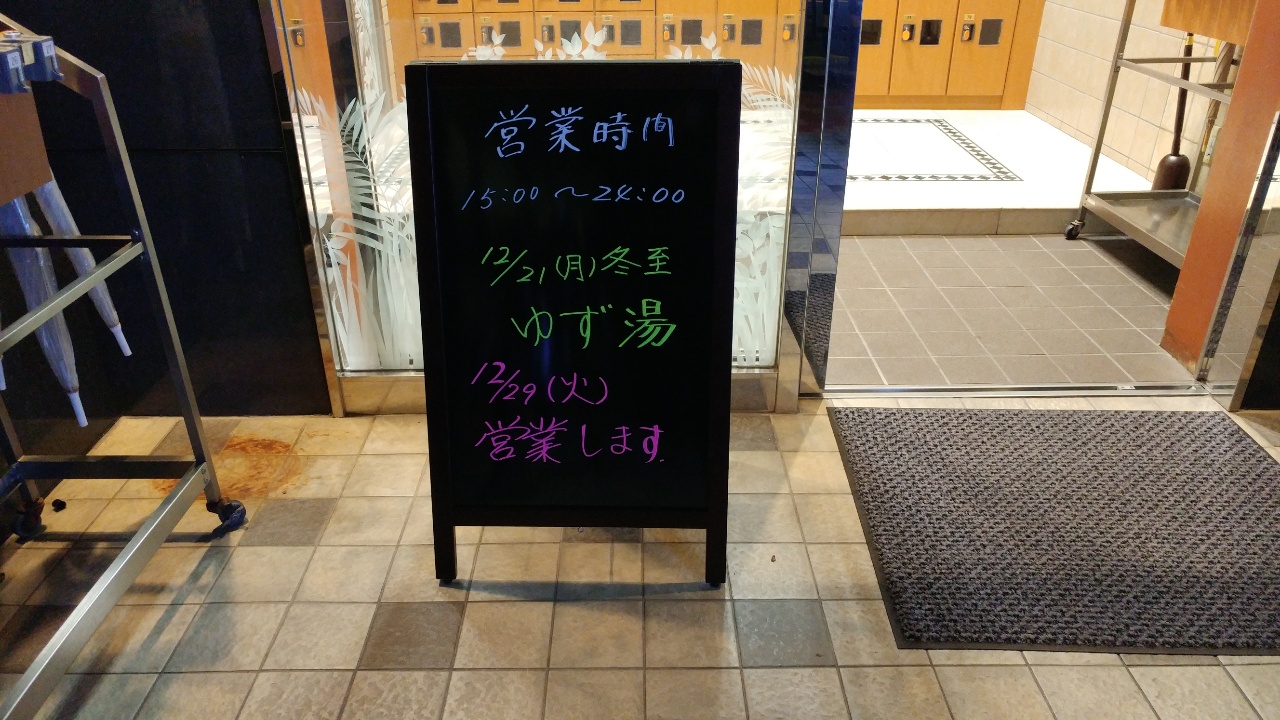 営業時間
15:00〜24:00
12/21(月)冬至
ゆず湯
12/29(火)
営業します.